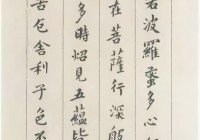 若波羅蜜多心
在菩薩行深般
多時炤見五蘊皆
苦厄舍利子色不